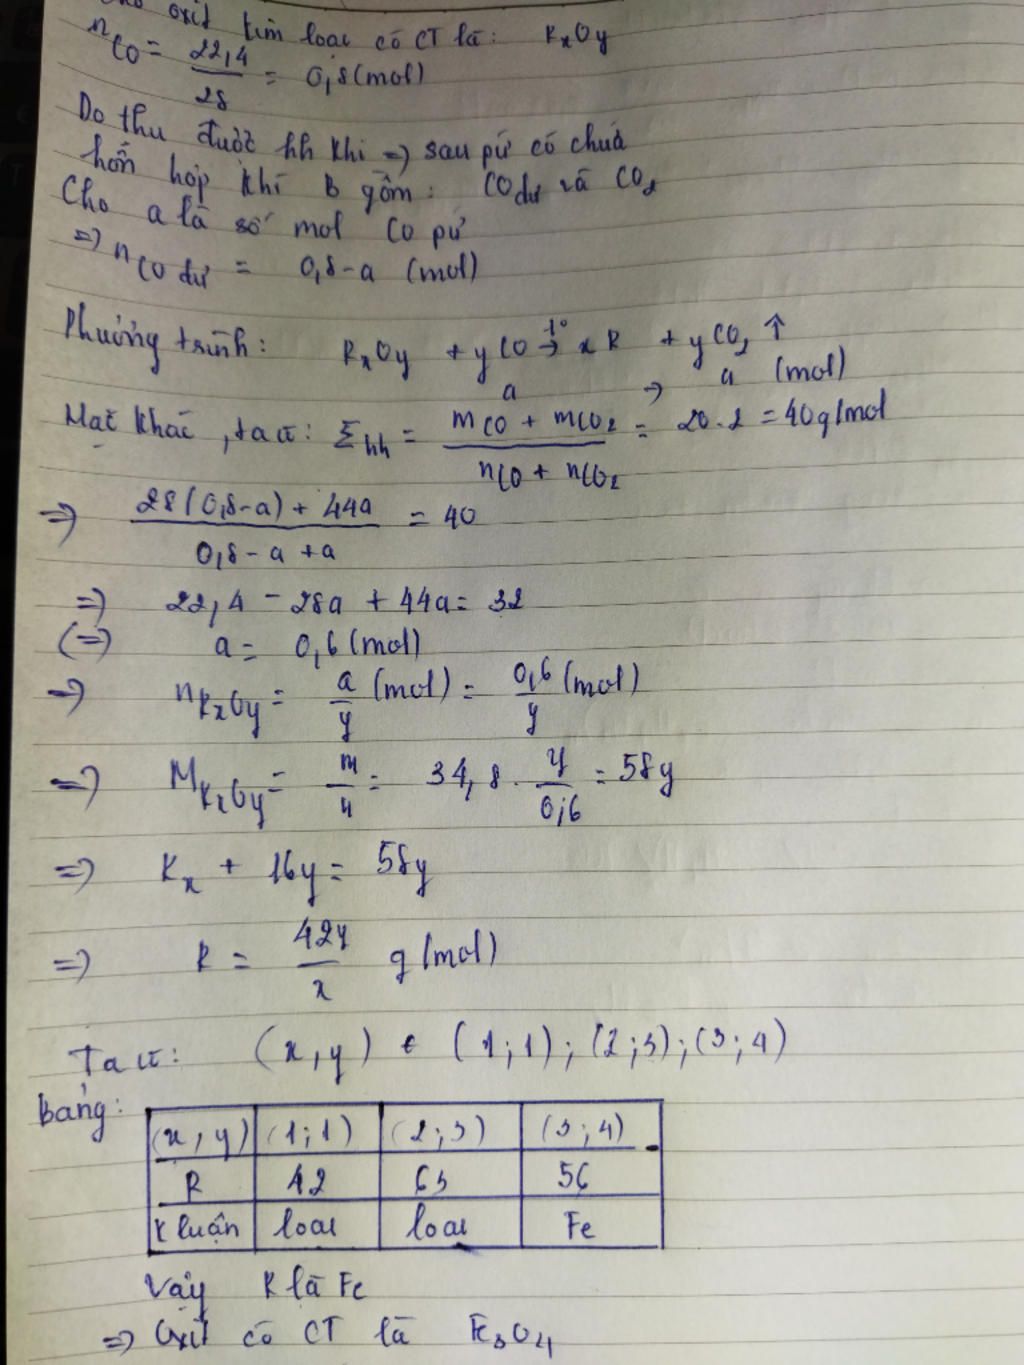 oxit kim loại có CT là: RxOy
nCO = 22,4/28 = 0,8(mol)
Do thu được hh khí => sau pứ có chứa
hỗn hợp khí B gồm: CO dư và CO2
Cho a là số mol CO pứ
=> nCO dư = 0,8-a (mol)
Phương trình: RxOy + yCO t°→ xR + yCO2 ↑
a → a (mol)
Mặt khác, ta có: Σhh = (mCO + mCO2)/(nCO + nCO2) = 20.2 = 40g/mol
=> (28(0,8-a) + 44a)/(0,8-a+a) = 40
=> 22,4 - 28a + 44a = 32
(=>) a = 0,6 (mol)
=> nRxOy = a/y (mol) = 0,6/y (mol)
=> MRxOy = m/n = 34,8 . y/0,6 = 58y
=> Rx + 16y = 58y
=> R = 42y/x g/mol)
Ta có: (x,y) ∈ (1;1); (2;3); (3;4)
Bảng:
(x,y) (1;1) (2;3) (3;4)
R 42 63 56
K luận loại loại Fe
Vậy R là Fe
=> Oxit có CT là Fe3O4